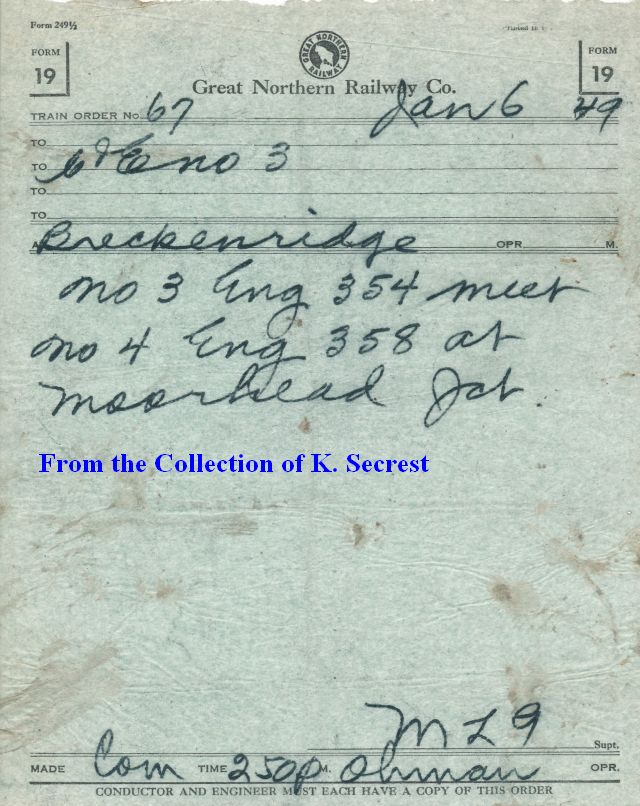 Form 249½
FORM
19
GREAT NORTHERN RAILWAY
FORM
19
Great Northern Railway Co.
TRAIN ORDER No. 67 Jan 6 49
TO
TO C&E no 3
TO
TO
Breckenridge OPR. M.
no 3 Eng 354 meet
no 4 Eng 358 at
Moorhead Jct.
From the Collection of K. Secrest
Supt.
MADE Com TIME 250p M. Ohman OPR.
CONDUCTOR AND ENGINEER MUST EACH HAVE A COPY OF THIS ORDER